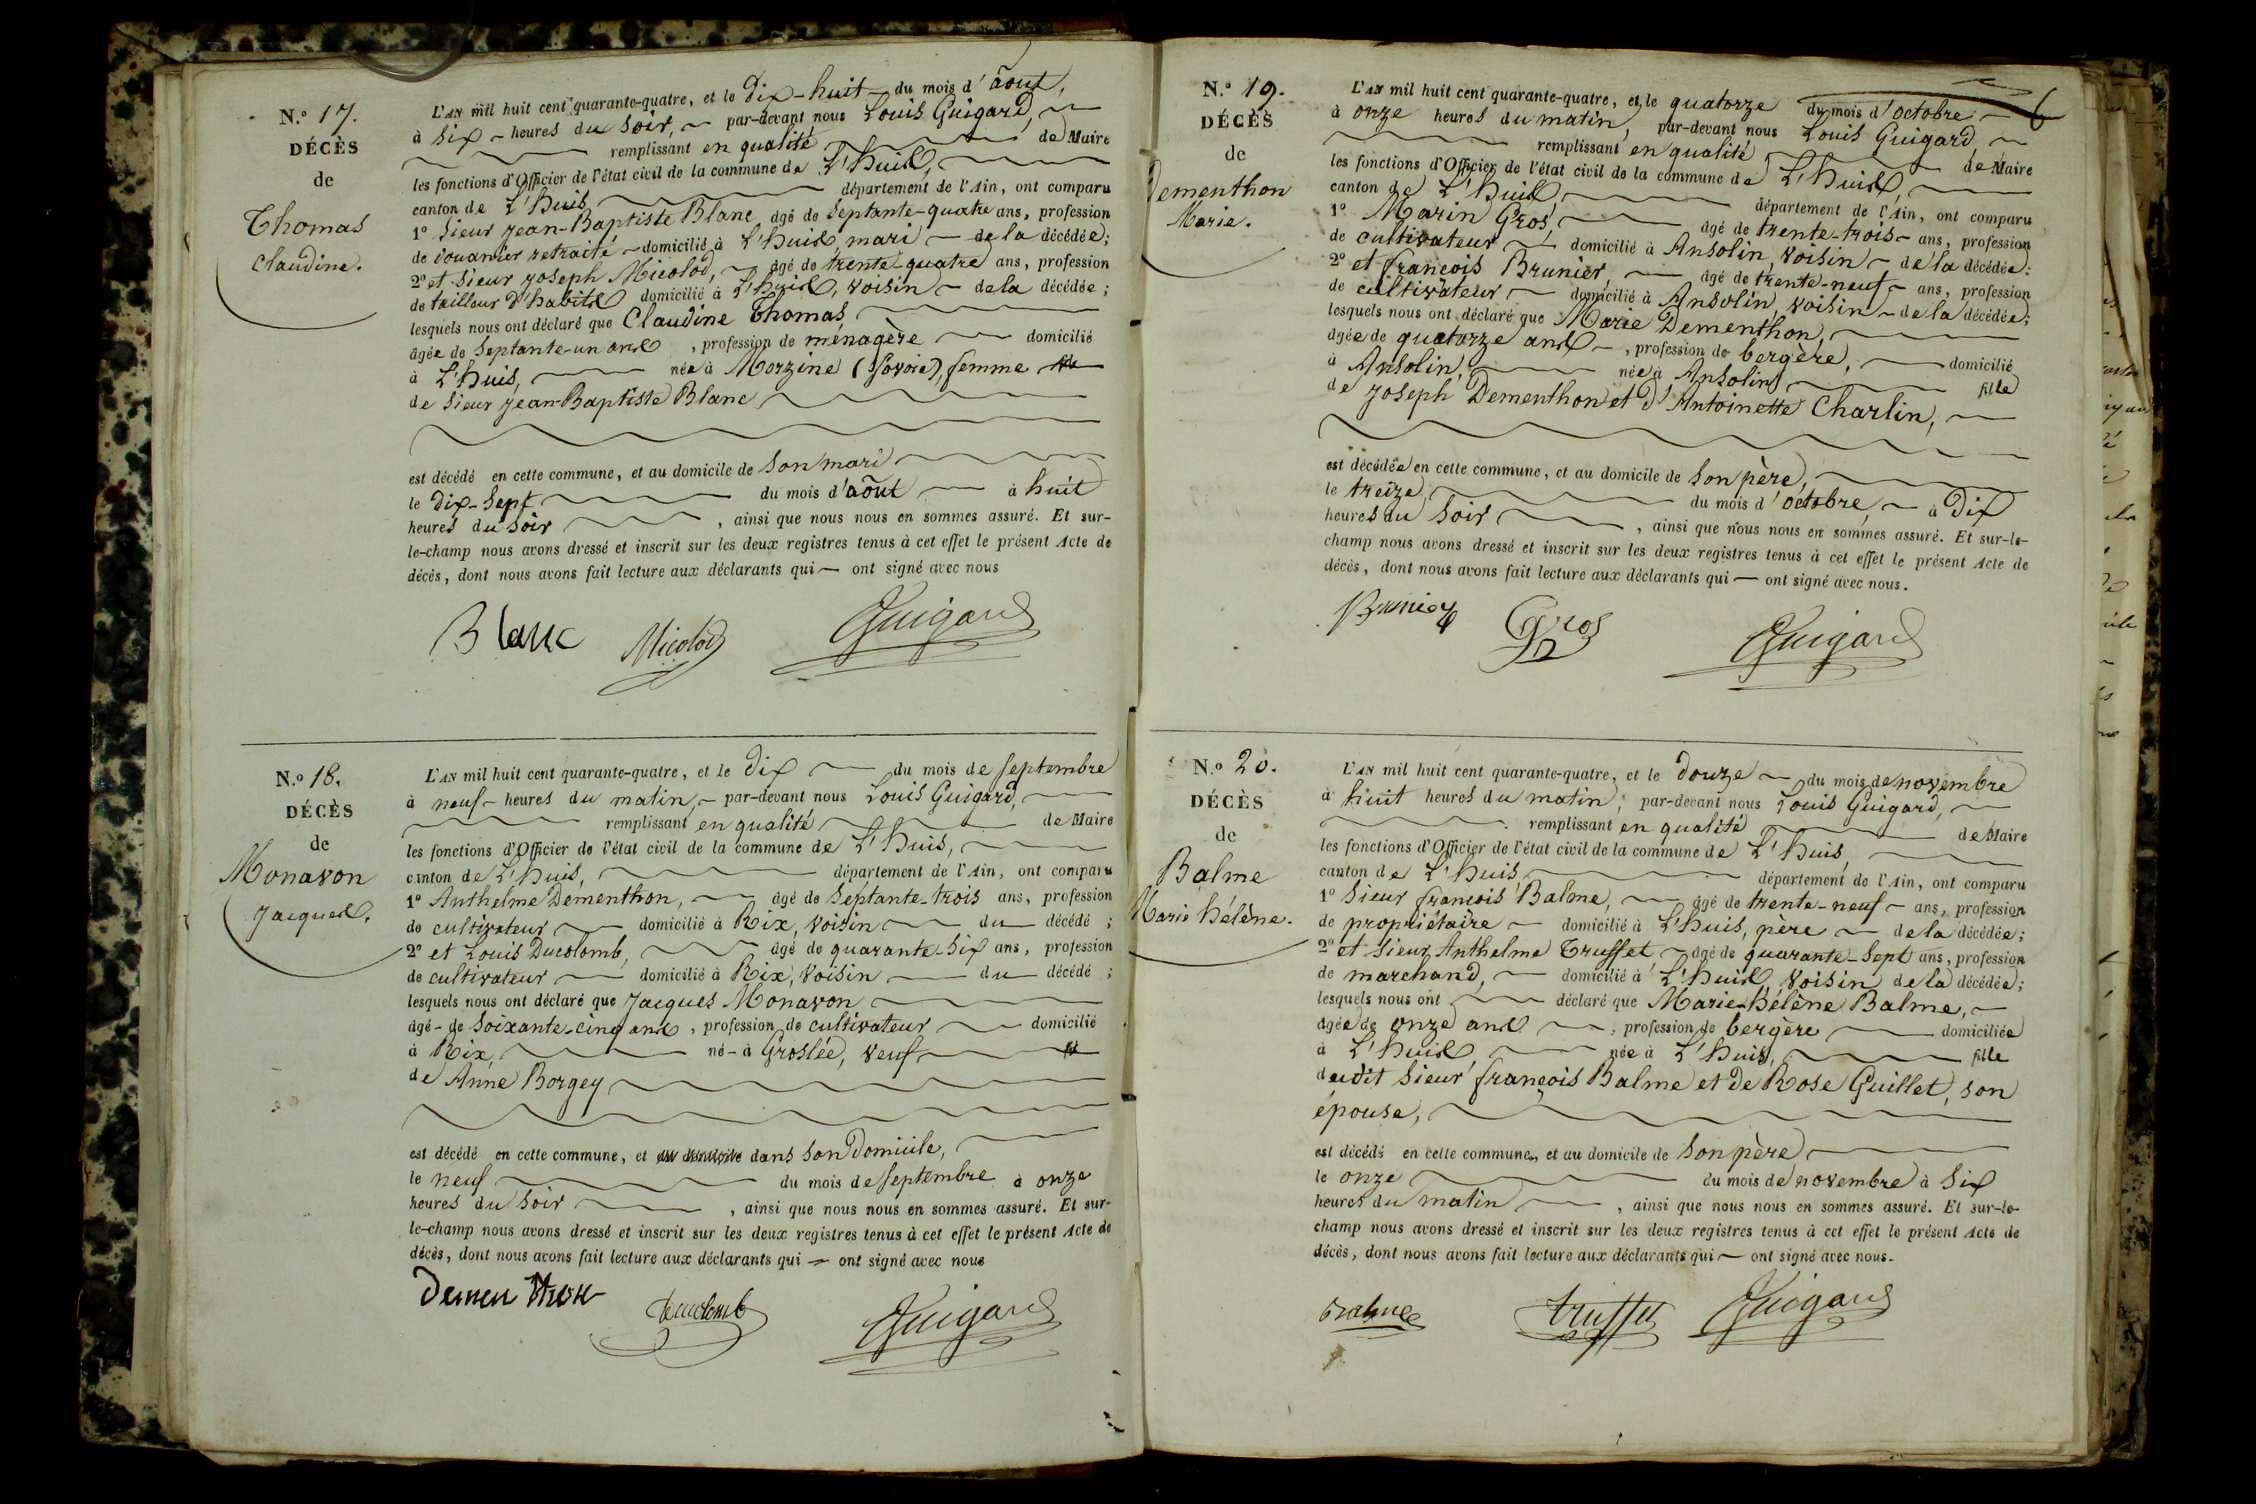 N.° 17.
DÉCÈS
de
Thomas
Claudine.
L'AN mil huit cent quarante-quatre, et le Dix-huit du mois d'août,
à six heures du soir, par-devant nous Louis Guigard,
remplissant en qualité de Maire
les fonctions d'Officier de l'état civil de la commune de L'huis,
canton de L'huis, département de l'Ain, ont comparu
1° Sieur Jean-Baptiste Blanc âgé de Septante-quatre ans, profession
de douanier retraité domicilié à L'huis, mari de la décédée;
2° et Sieur Joseph Nicolod, âgé de trente-quatre ans, profession
de tailleur d'habits domicilié à L'huis, voisin de la décédée;
lesquels nous ont déclaré que Claudine Thomas
âgée de Septante-un ans, profession de ménagère domicilié
à L'huis, née à Morzine (Savoie), femme
de Sieur Jean-Baptiste Blanc
est décédé en cette commune, et au domicile de Son mari
le Dix-Sept du mois d'août à huit
heures du soir, ainsi que nous nous en sommes assuré. Et sur-
le-champ nous avons dressé et inscrit sur les deux registres tenus à cet effet le présent Acte de
décès, dont nous avons fait lecture aux déclarants qui ont signé avec nous
Blanc Nicolod Guigard
N.° 18.
DÉCÈS
de
Monavon
Jacques.
L'AN mil huit cent quarante-quatre, et le Dix du mois de septembre
à neuf heures du matin, par-devant nous Louis Guigard,
remplissant en qualité de Maire
les fonctions d'Officier de l'état civil de la commune de L'huis,
canton de L'huis, département de l'Ain, ont comparu
1° Anthelme Dementhon, âgé de Septante-trois ans, profession
de cultivateur domicilié à Rix, voisin du décédé;
2° et Louis Ducolomb, âgé de quarante-six ans, profession
de cultivateur domicilié à Rix, voisin du décédé;
lesquels nous ont déclaré que Jacques Monavon
âgé de Soixante-cinq ans, profession de cultivateur domicilié
à Rix, né à Groslée, veuf
de Anne Borgey
est décédé en cette commune, et au domicile dans son Domicile,
le neuf du mois de septembre à onze
heures du soir, ainsi que nous nous en sommes assuré. Et sur-
le-champ nous avons dressé et inscrit sur les deux registres tenus à cet effet le présent Acte de
décès, dont nous avons fait lecture aux déclarants qui ont signé avec nous
Dementhon Ducolomb Guigard
6
N.° 19.
DÉCÈS
de
Dementhon
Marie.
L'AN mil huit cent quarante-quatre, et le quatorze du mois d'octobre
à onze heures du matin, par-devant nous Louis Guigard,
remplissant en qualité de Maire
les fonctions d'Officier de l'état civil de la commune de L'huis,
canton de L'huis, département de l'Ain, ont comparu
1° Marin Gros, âgé de trente-trois ans, profession
de cultivateur domicilié à Ansolin, voisin de la décédée;
2° et françois Brunier, âgé de trente-neuf ans, profession
de cultivateur, domicilié à Ansolin, voisin de la décédée;
lesquels nous ont déclaré que Marie Dementhon,
âgée de quatorze ans, profession de bergère, domicilié
à Ansolin, née à Ansolin fille
de Joseph Dementhon et d'Antoinette Charlin,
est décédée en cette commune, et au domicile de son père,
le treize, du mois d'octobre, à Dix
heures du soir, ainsi que nous nous en sommes assuré. Et sur-le-
champ nous avons dressé et inscrit sur les deux registres tenus à cet effet le présent Acte de
décès, dont nous avons fait lecture aux déclarants qui ont signé avec nous.
Brunier Gros Guigard
N.° 20.
DÉCÈS
de
Balme
Marie hélène.
L'AN mil huit cent quarante-quatre, et le Douze du mois de novembre
à huit heures du matin, par-devant nous Louis Guigard,
remplissant en qualité de Maire
les fonctions d'Officier de l'état civil de la commune de L'huis,
canton de L'huis, département de l'Ain, ont comparu
1° Sieur françois Balme, âgé de trente-neuf ans, profession
de propriétaire domicilié à L'huis, père de la décédée;
2° et sieur Anthelme Truffet âgé de quarante-Sept ans, profession
de marchand, domicilié à L'huis, voisin de la décédée;
lesquels nous ont déclaré que Marie-hélène Balme,
âgée de onze ans, profession de bergère domiciliée
à L'huis, née à L'huis, fille
dudit Sieur françois Balme et de Rose Guillet, son
épouse,
est décédé en cette commune, et au domicile de son père
le onze du mois de novembre à six
heures du matin, ainsi que nous nous en sommes assuré. Et sur-le-
champ nous avons dressé et inscrit sur les deux registres tenus à cet effet le présent Acte de
décès, dont nous avons fait lecture aux déclarants qui ont signé avec nous.
Balme truffet Guigard